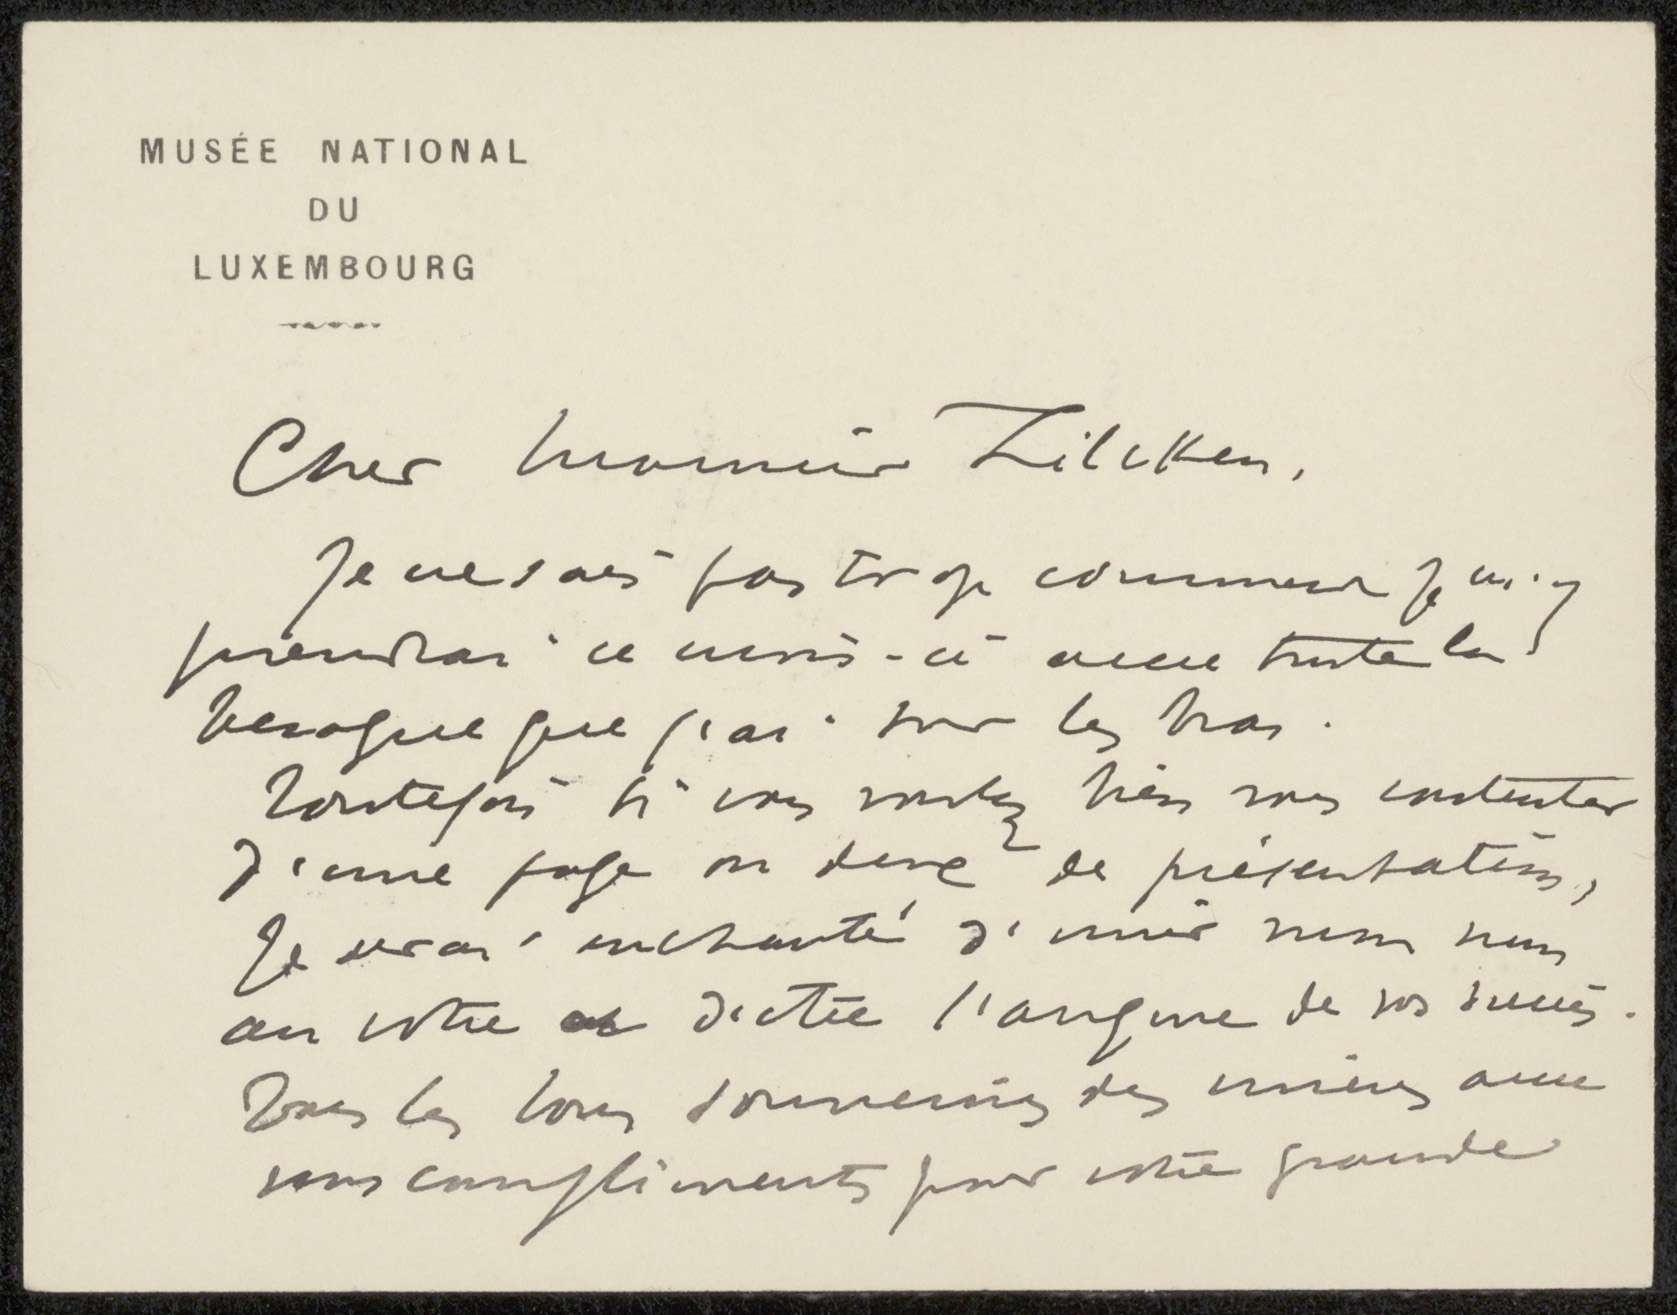 MUSÉE NATIONAL
DU
LUXEMBOURG
Cher Monsieur Zilcken,
Je ne sais pas trop comment je m'y
prendrai ce mois-ci avec toute la
besogne que j'ai sur les bras.
Toutefois si vous voulez bien vous contenter
d'une page ou deux de présentation,
je serai enchanté d'unir mon nom
au vôtre et de vos succès.
Tous les bons souvenirs des miens avec
nos compliments pour votre grande